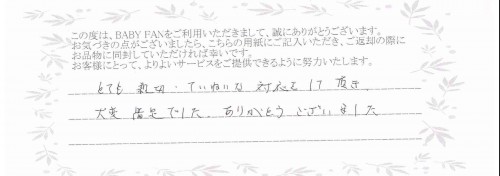 この度は、BABY FANをご利用いただきまして、誠にありがとうございます。
お気づきの点がございましたら、こちらの用紙にご記入いただき、ご返却の際に
お品物に同封していただければ幸いです。
お客様にとって、よりよいサービスをご提供できるように努力いたします。
とても 親切・ていねいな 対応をして頂き、
大変 満足でした。ありがとう ございました